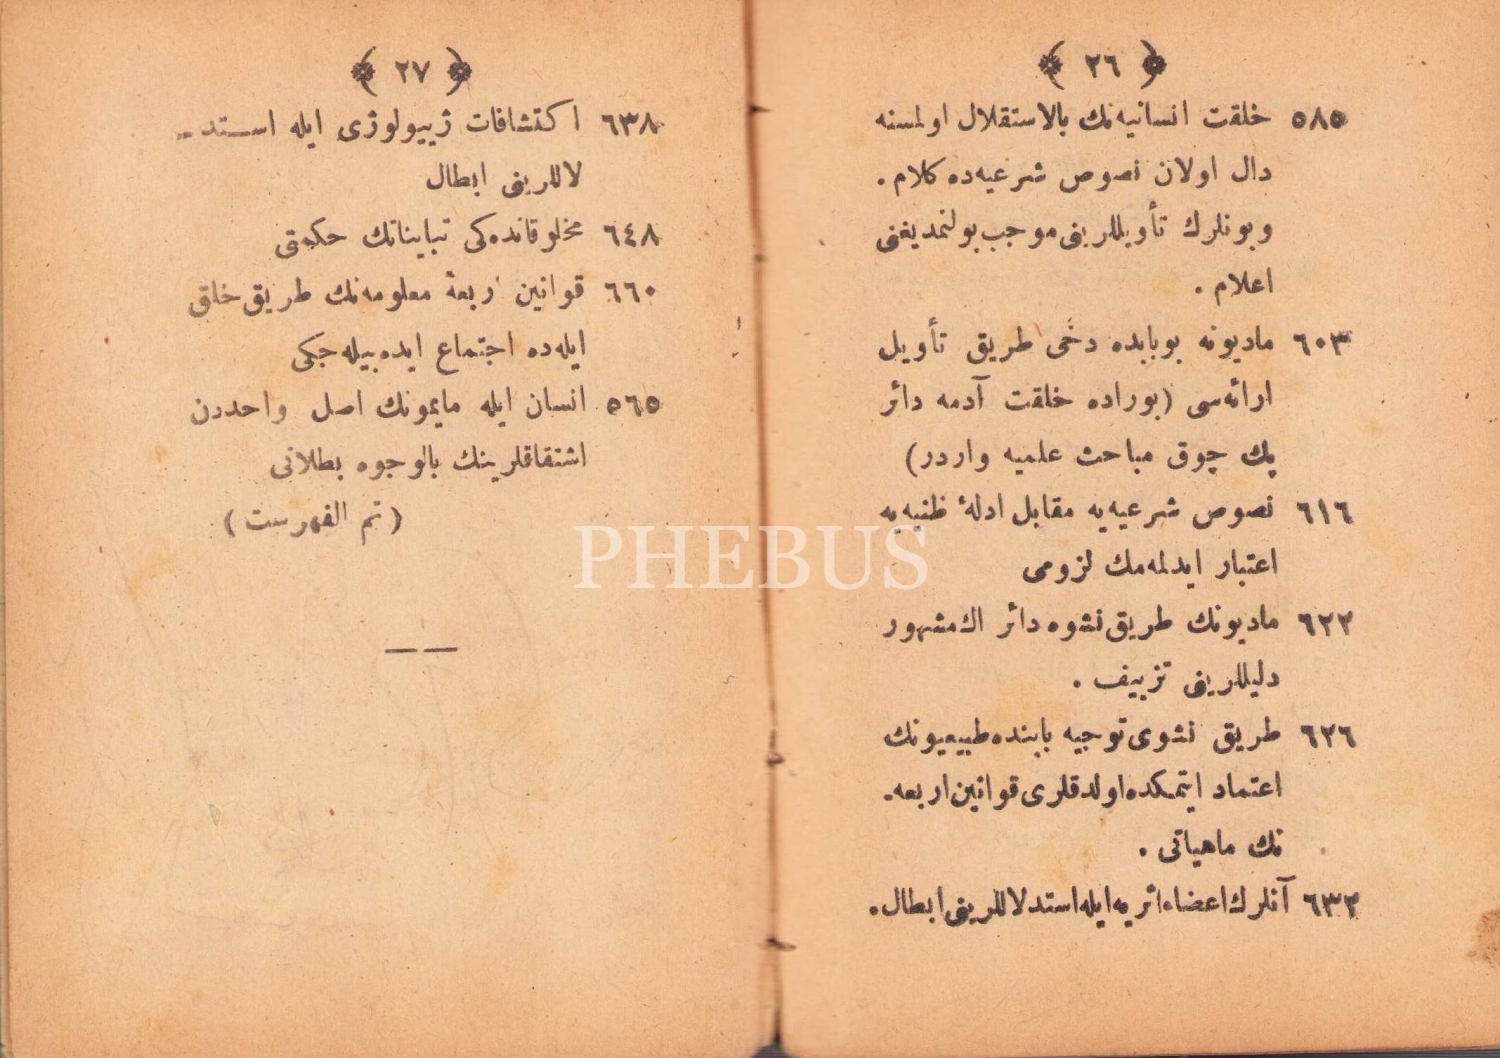 ﴿ ٢٦ ﴾
٥٨٥ خلقت انسانيه‌نك بالاستقلال اولمسنه
دال اولان نصوص شرعيه‌ده كلام .
وبونلرك تأويللرينى موجب بولنمديغنى
اعلام .
٦٠٣ ماديونه بوبابده دخى طريق تأويل
ارائه‌سى (بوراده خلقت آدمه دائر
پك چوق مباحث علميه واردر)
٦١٦ نصوص شرعيه‌يه مقابل ادلۀ ظنيه‌يه
اعتبار ايدلمه‌مك لزومى
٦٢٢ ماديونك طريق نشوه دائر اك مشهور
دليللرينى تزييف .
٦٢٦ طريق نشوى توجيه بابنده طبيعيونك
اعتماد ايتمكده اولدقلرى قوانين اربعه‌ـ
نك ماهياتى .
٦٣٢ آنلرك اعضاء اثريه ايله استدلاللرينى ابطال .
﴿ ٢٧ ﴾
٦٣٨ اكتشافات ژييولوژى ايله استدـ
لاللرينى ابطال
٦٤٨ مخلوقانده‌كى تبايناتك حكمتى
٦٦٠ قوانين اربعۀ معلومه‌نك طريق خلق
ايله‌ده اجتماع ايده‌بيله‌جكى
٥٦٥ انسان ايله مايمونك اصل واحددن
اشتقاقلرينك بالوجوه بطلانى
(تم الفهرست)
PHEBUS